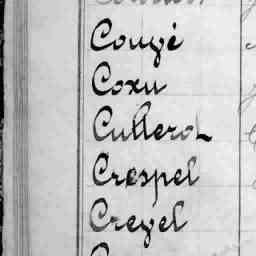 Cougé
Coxu
Cullerot
Crespel
Creyel